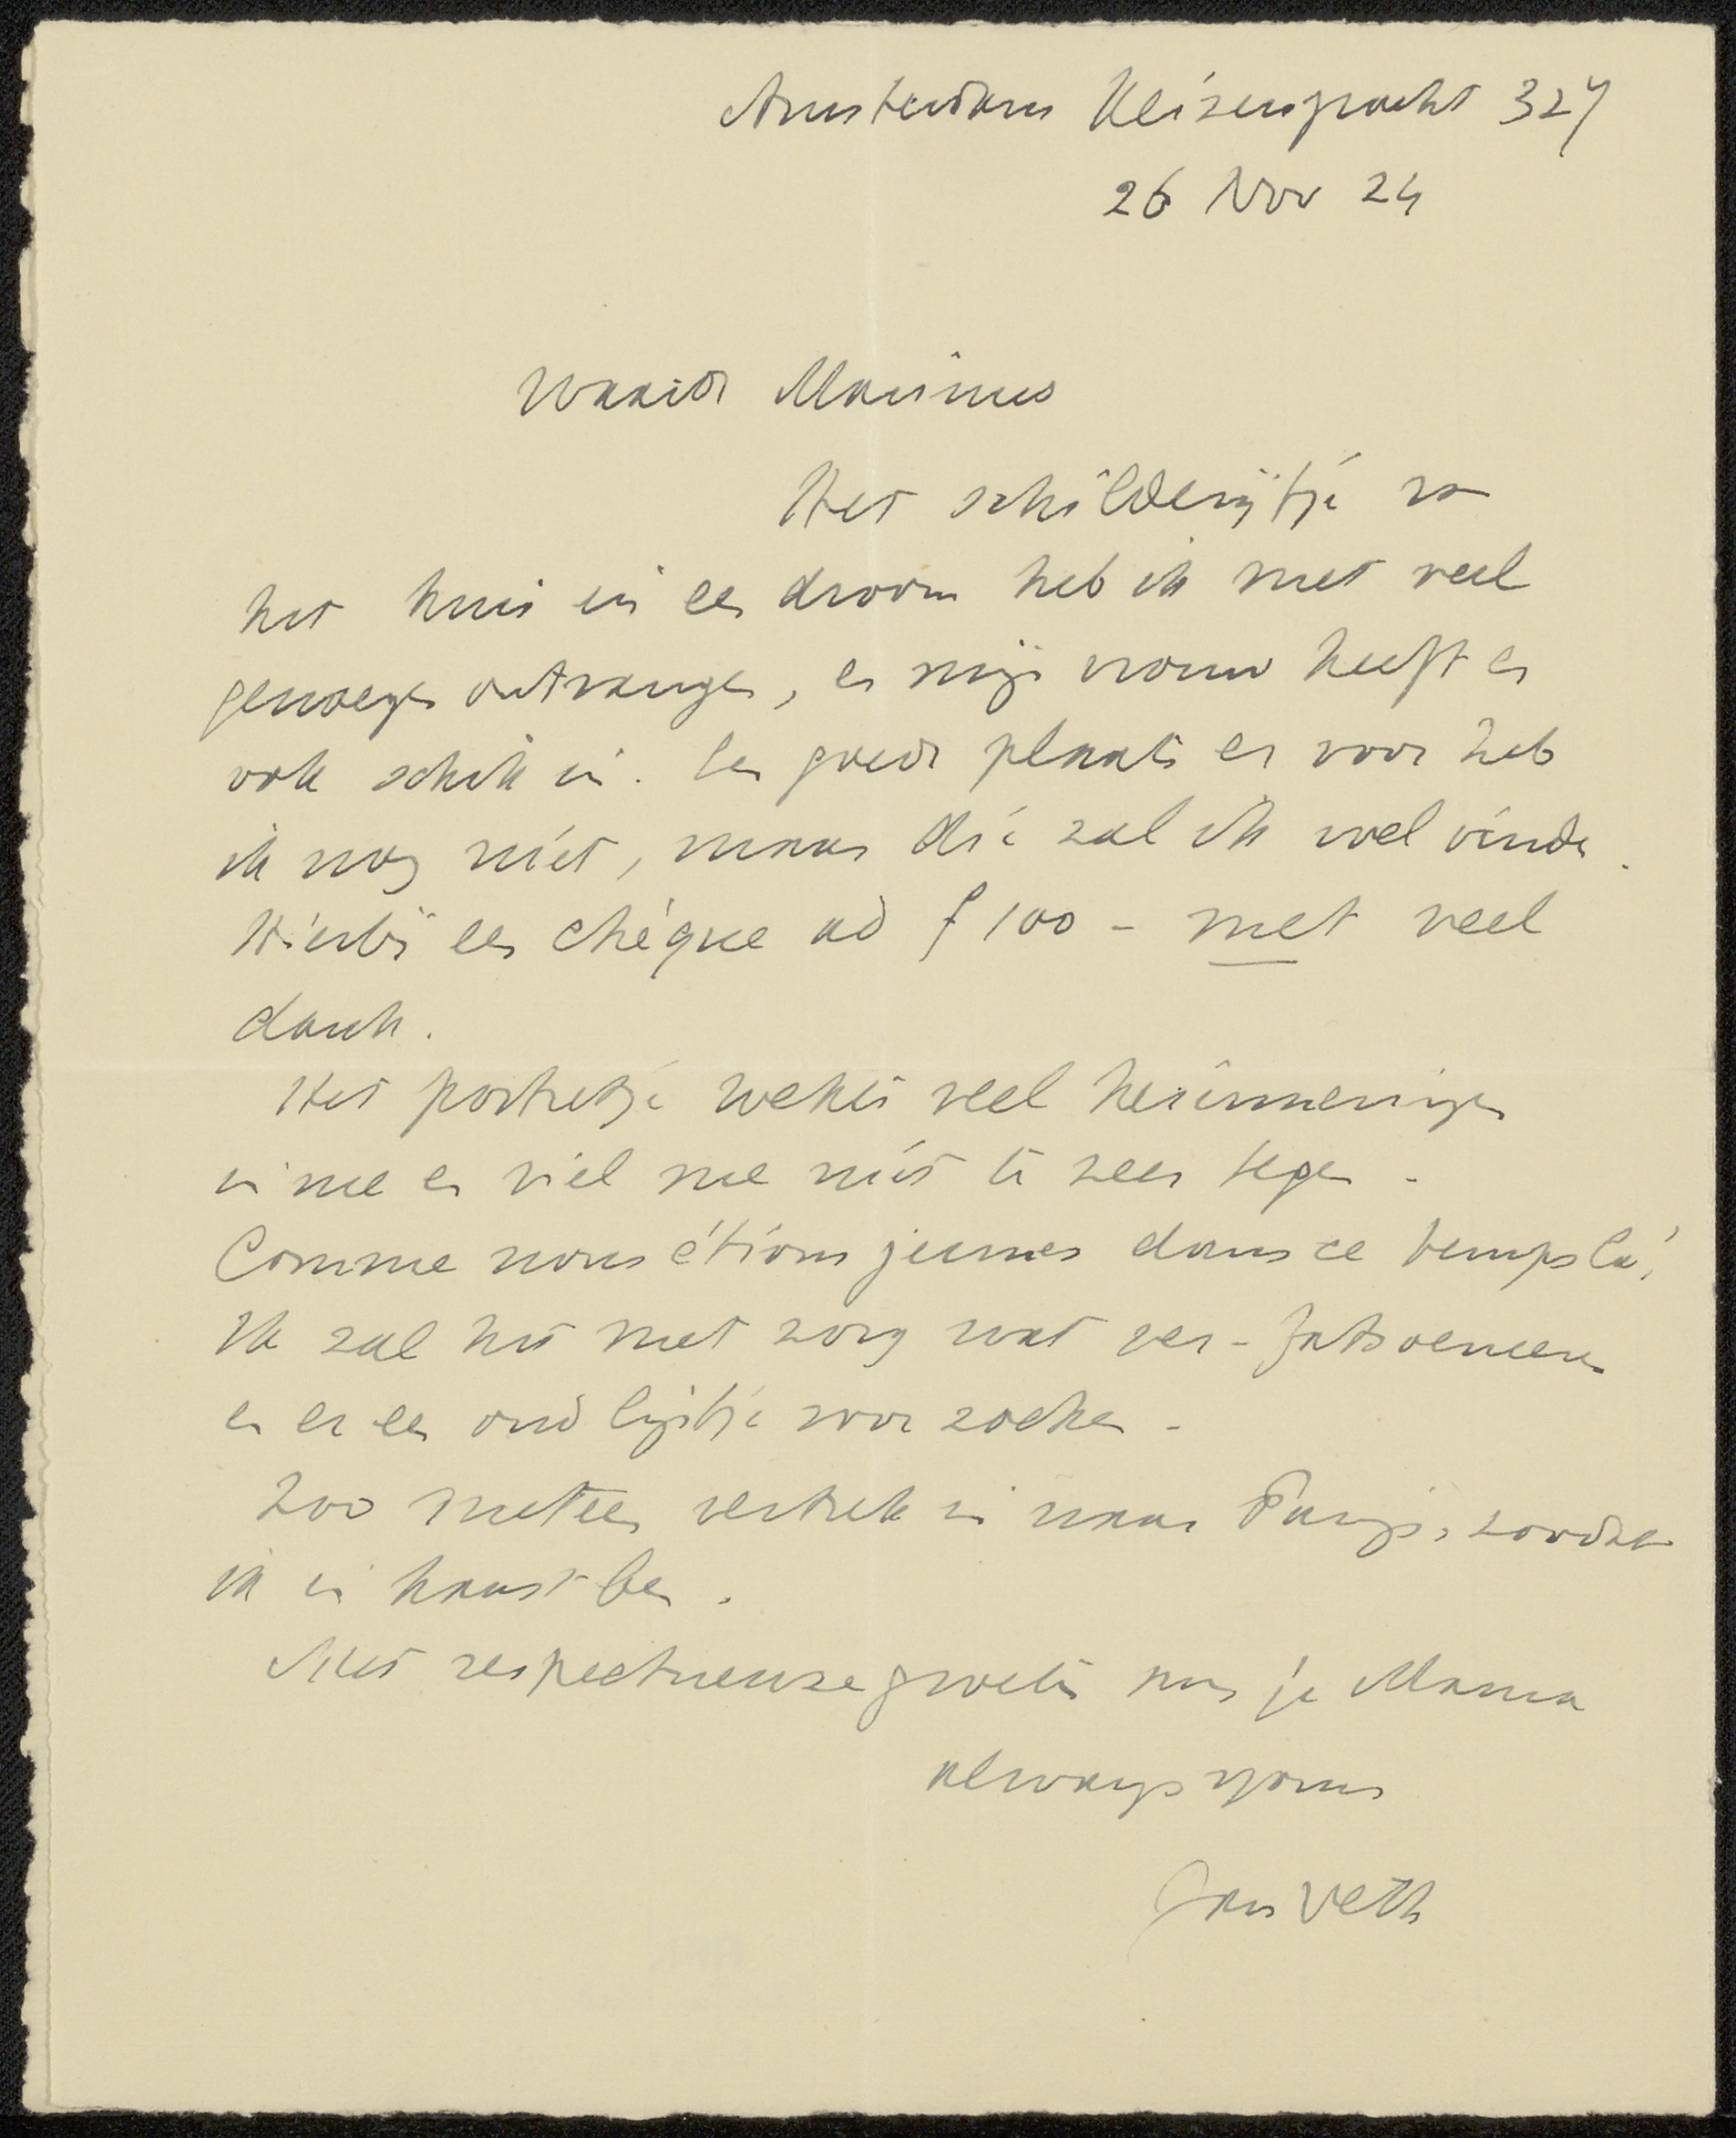 Amsterdam Keizersgracht 327
26 Nov 24
Waarde Marinus
Het schilderijtje van
het huis in een droom heb ik met veel
genoegen ontvangen, en mijn vrouw heeft er
ook schik in. Een goede plaats er voor heb
ik nog niet, maar die zal ik wel vinden.
Hierbij een chèque ad ƒ 100 – met veel
dank.
Het portretje wekte veel herinneringen
in me en viel me niet te zeer tegen.
Comme nous étions jeunes dans ce temps là!
Ik zal het met zorg wat ver-fatsoeneeren
en er een oud lijstje voor zoeken.
Zoo meteen vertrek ik naar Parijs, zoodat
ik in haast ben.
Met respectueuze groeten aan je Mama
always yours
Jan Veth